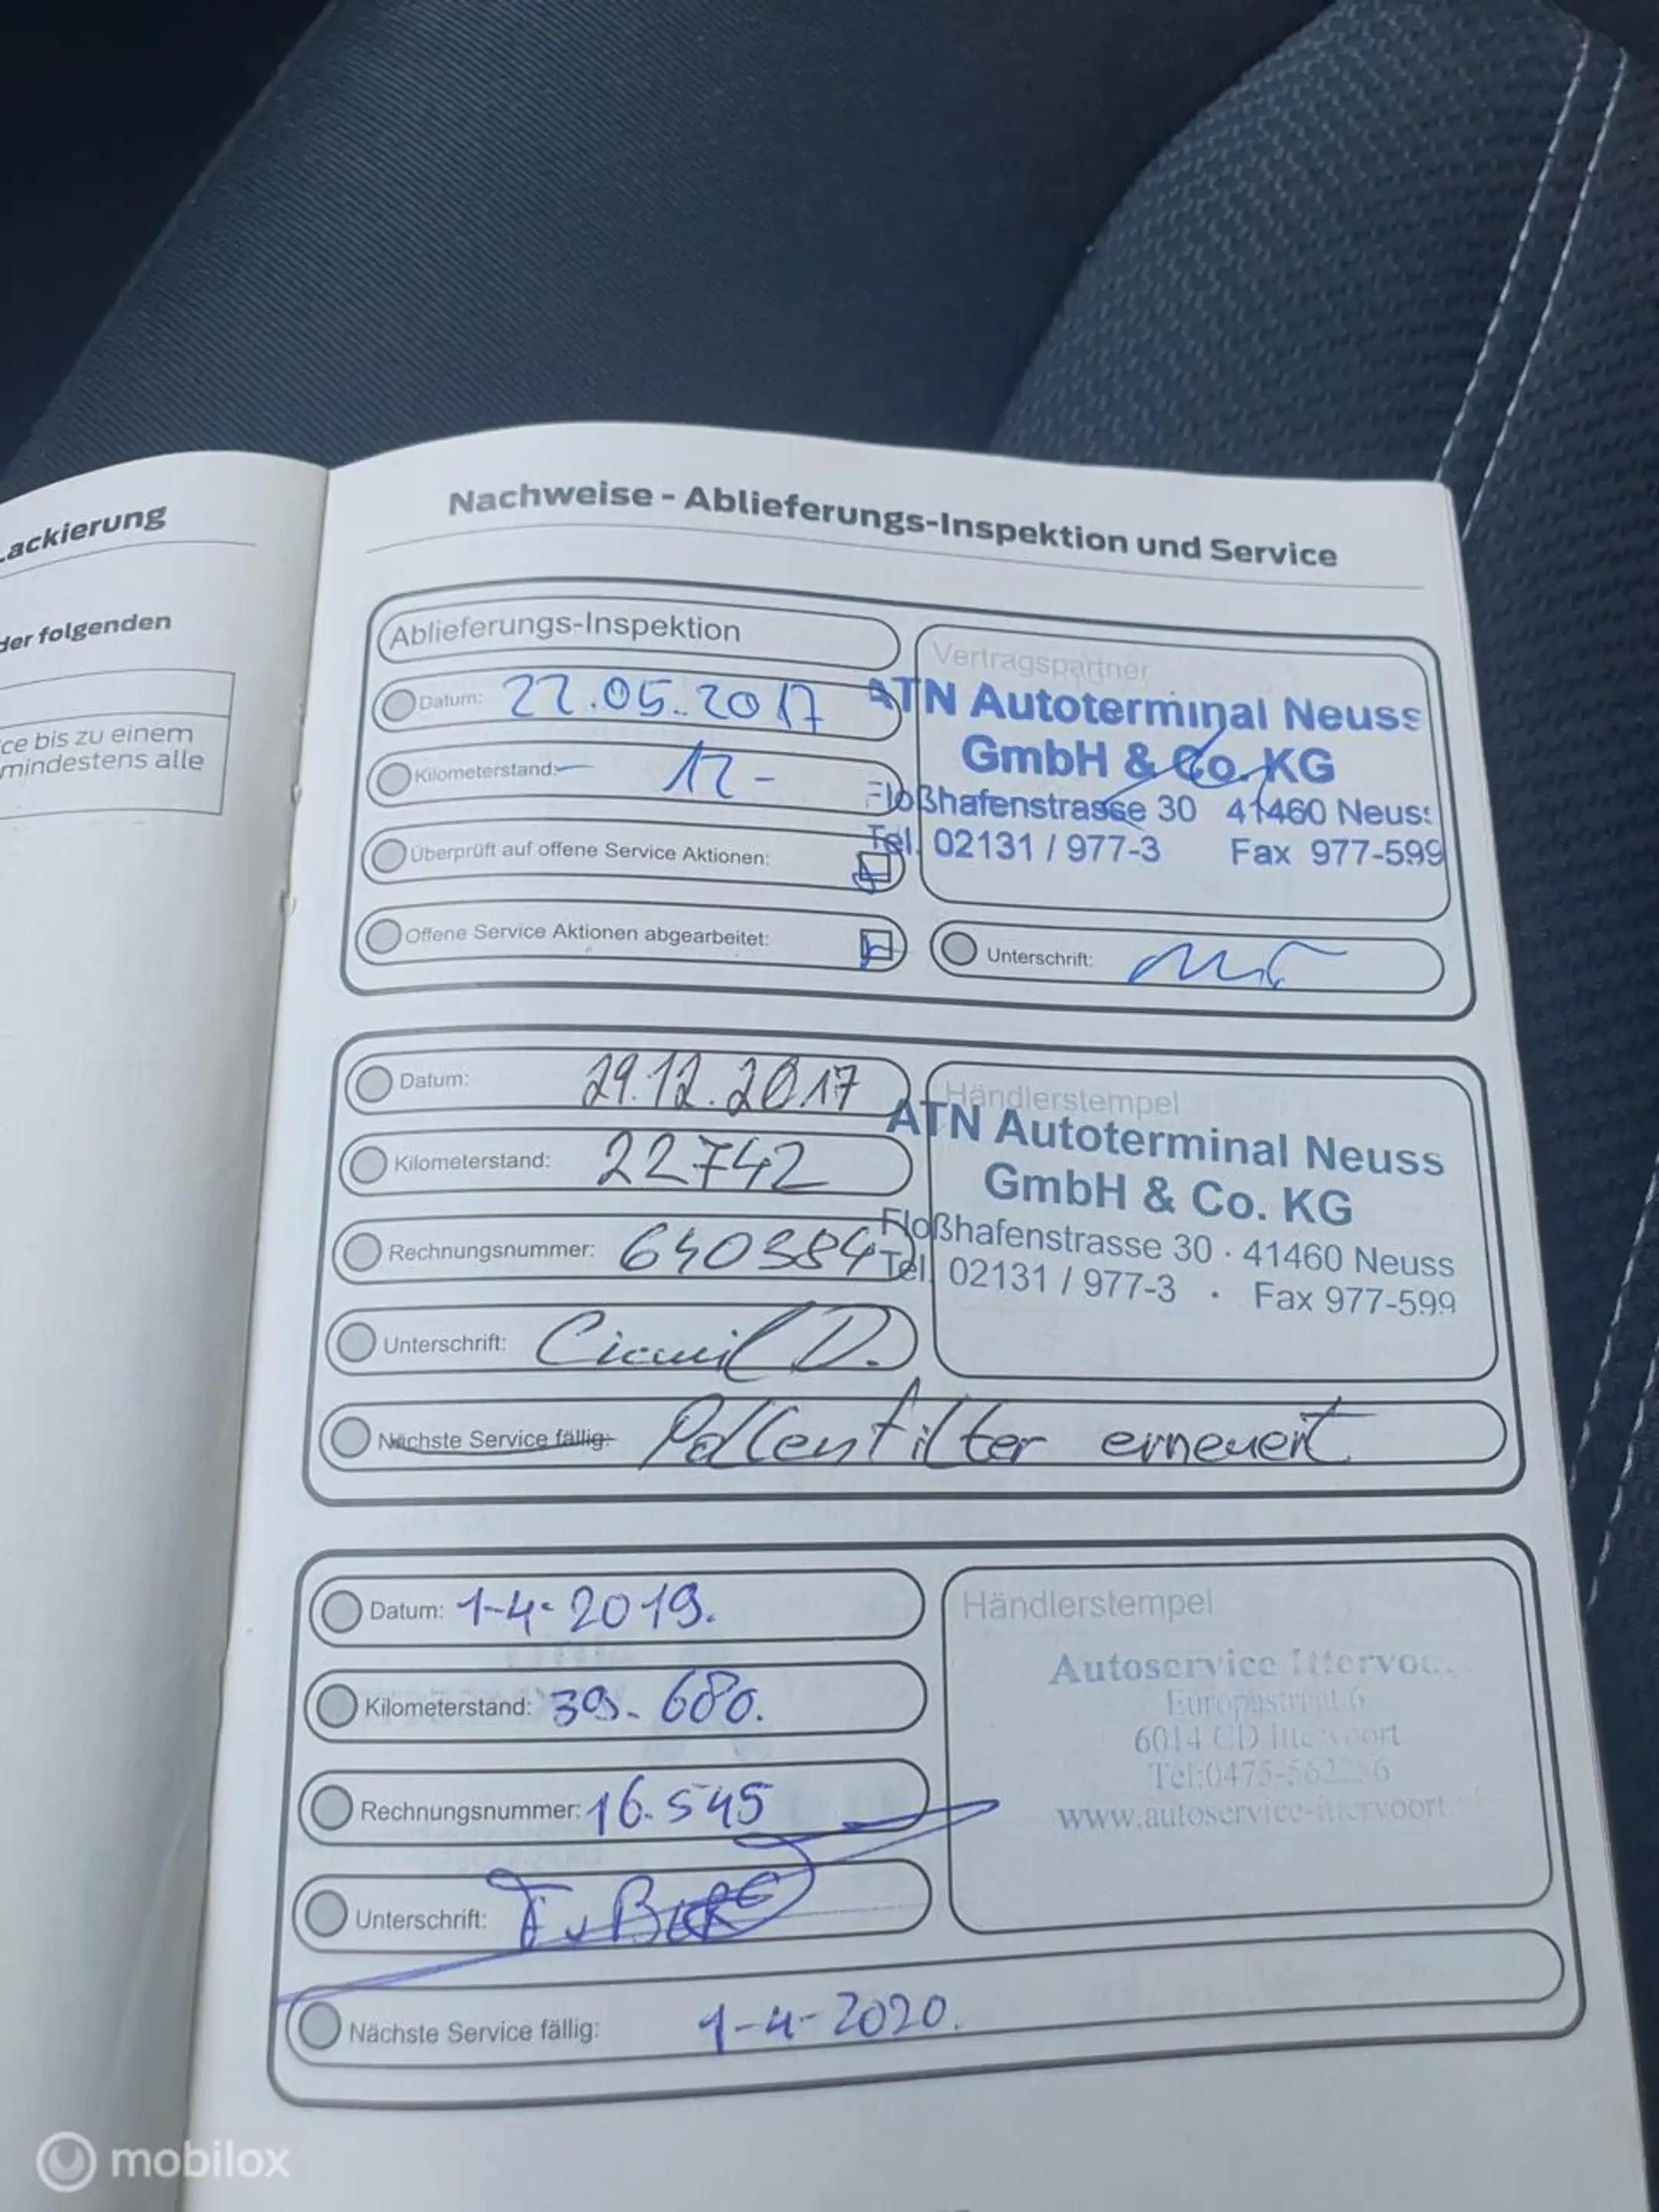 Lackierung
der folgenden
ce bis zu einem
mindestens alle
Nachweise - Ablieferungs-Inspektion und Service
Ablieferungs-Inspektion
Vertragspartner
Datum: 22.05.2017
ATN Autoterminal Neuss
GmbH & Co. KG
Kilometerstand: 12-
Floßhafenstrasse 30 41460 Neuss
Tel. 02131 / 977-3 Fax 977-599
Überprüft auf offene Service Aktionen:
Offene Service Aktionen abgearbeitet:
Unterschrift:
Datum: 29.12.2017
Händlerstempel
ATN Autoterminal Neuss
GmbH & Co. KG
Kilometerstand: 22742
Floßhafenstrasse 30 · 41460 Neuss
Tel. 02131 / 977-3 · Fax 977-599
Rechnungsnummer: 640384
Unterschrift: D.
Nächste Service fällig: Pollenfilter erneuert
Datum: 1-4-2019.
Händlerstempel
Autoservice
6014 CD Ittervoort
www.autoservice-ittervoort
Kilometerstand: 39.680.
Rechnungsnummer: 16.545
Unterschrift:
Nächste Service fällig: 1-4-2020.
mobilox